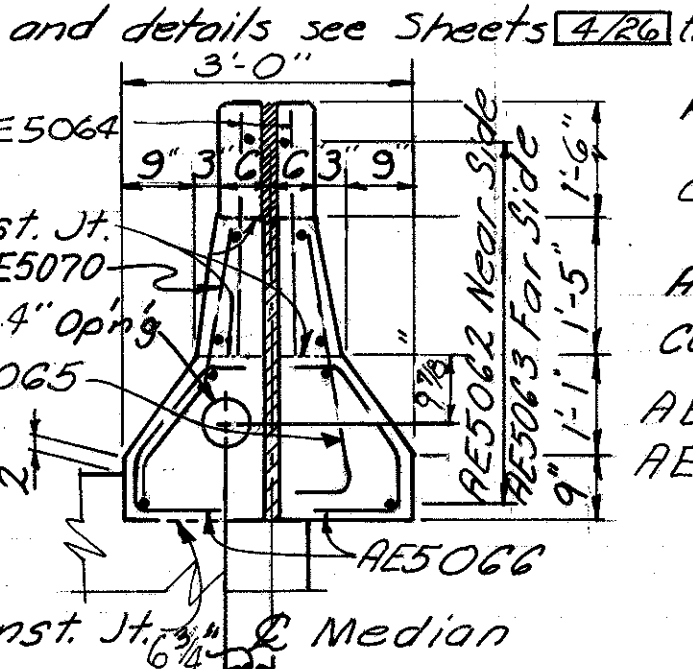 and details see Sheets 4/26 t
3'-0"
E5064
9" 3" 6" 6" 3" 9"
st. Jt.
E5070
4" Op'n'g
065
2
9 7/8"
AE5062 Near Side
AE5063 Far Side
1'-6"
1'-5"
1'-1"
9"
AE5066
nst. Jt.
6 3/4"
℄ Median
A
C
A
Co
AE
AE